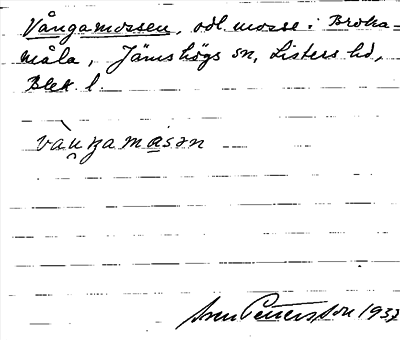 Vångamossen, odl. mosse i Broka-
måla, Jämshögs sn, Listers hd,
Blek. l.
vàŋgamasən
Sven Petersson 1937